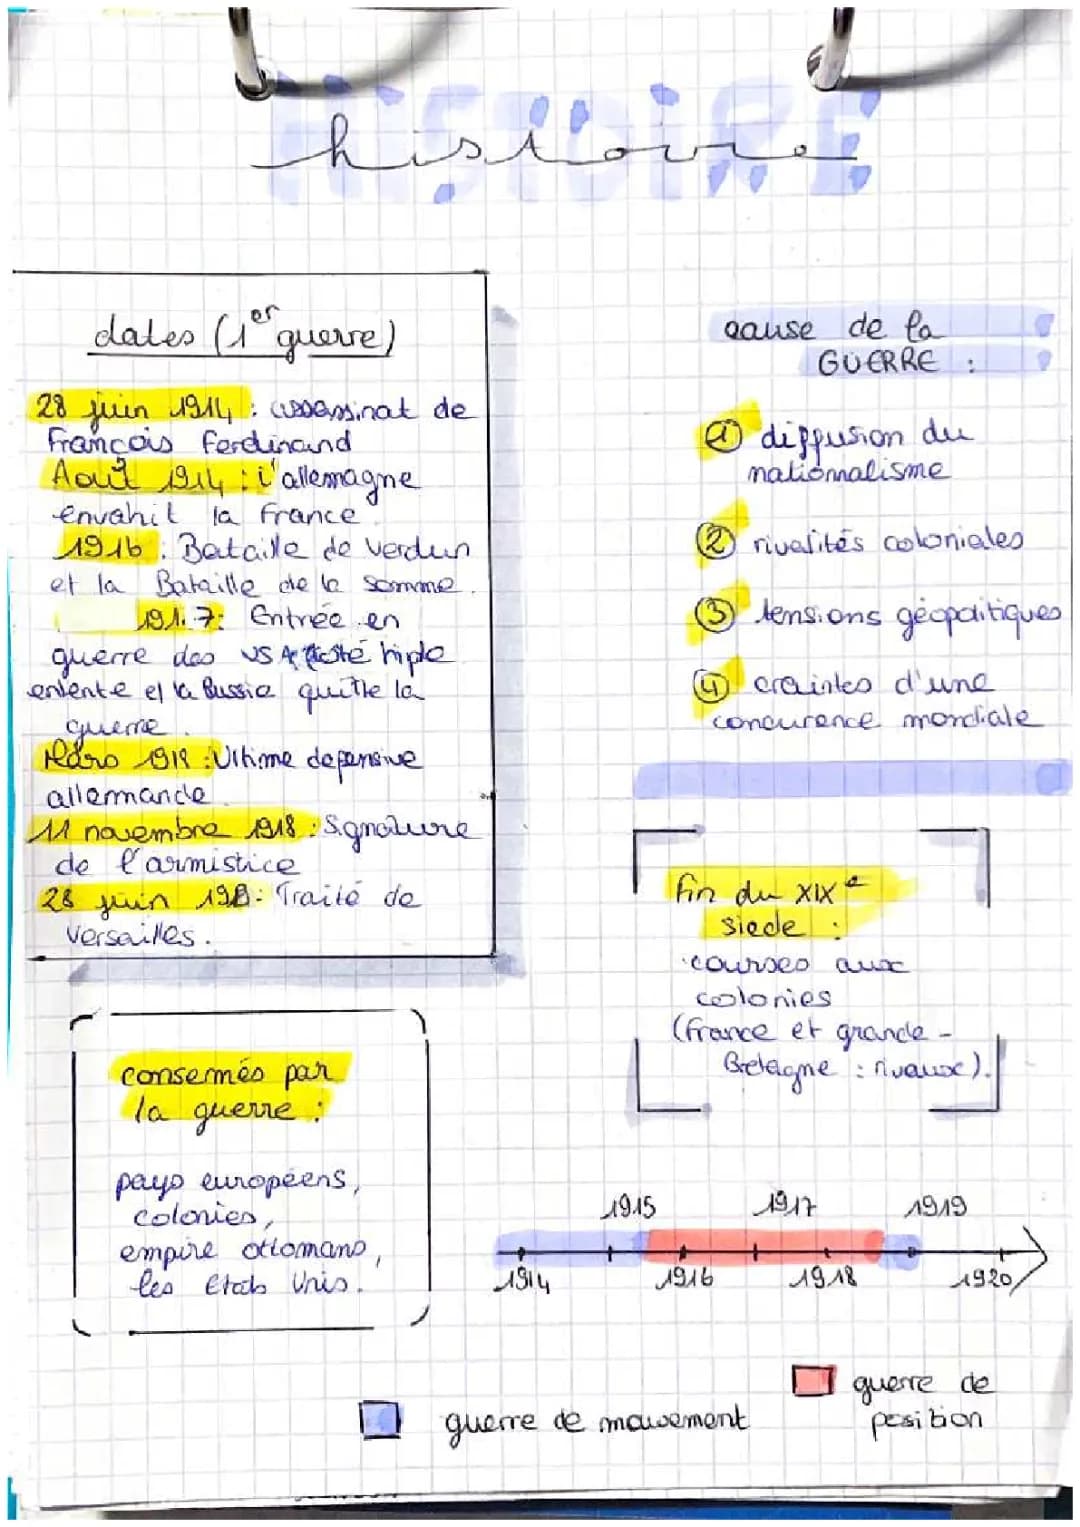 HISTOIRE
histoire
dates (1er guerre)
28 juin 1914 : assassinat de
François Ferdinand
Août 1914 : l'allemagne
envahit la France
1916 : Bataille de Verdun
et la Bataille de la Somme.
1917 : Entrée en
guerre des USA côté triple
entente et la Russie quitte la
guerre.
Mars 1918 : Ultime defensive
allemande.
11 novembre 1918 : Signature
de l'armistice
28 juin : Traité de
Versailles.
cause de la
GUERRE :
① diffusion du
nationnalisme
② rivalités coloniales
③ tensions géopolitiques
④ craintes d'une
concurence mondiale
fin du XIXe
siecle :
courses aux
colonies
(France et grande-
Bretagne : rivaux).
consernés par
la guerre :
pays européens,
colonies,
empire ottomans,
les Etats Unis.
1915 1917 1919
1914 1916 1918 1920
guerre de
position
guerre de mouvement